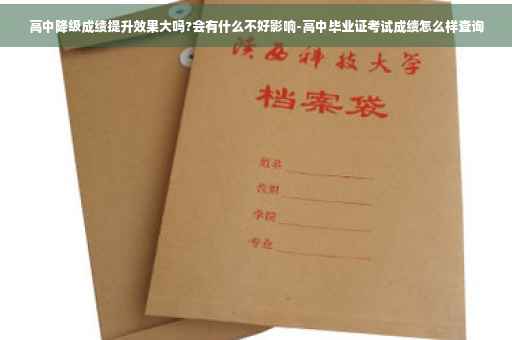 高中降级成绩提升效果大吗?会有什么不好影响-高中毕业证考试成绩怎么样查询
陕西科技大学
档案袋
姓名
性别
学院
专业